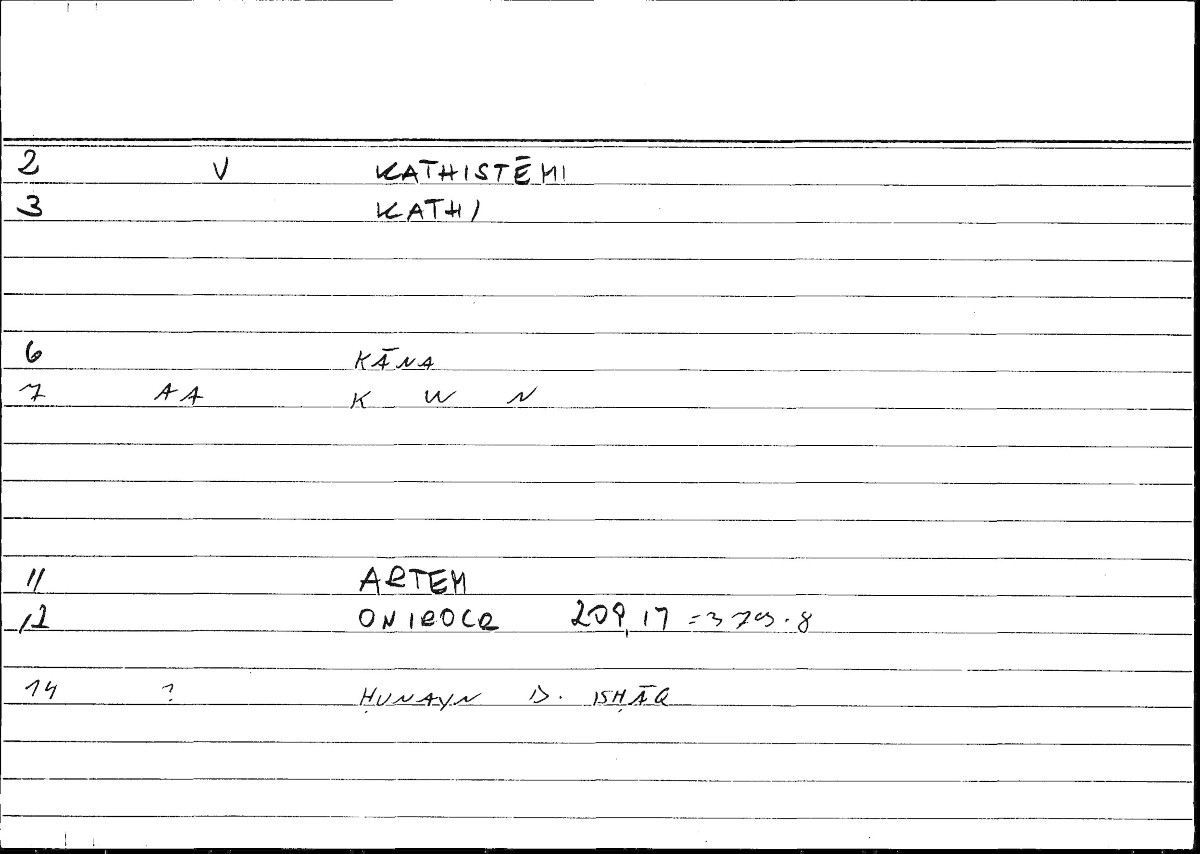 2 V KATHISTĒMI
3 KATHI
6 KĀNA
7 AA K W N
11 ARTEM
12 ONIROCR 209,17 = 379.8
14 ? ḤUNAYN B. ISḤĀQ